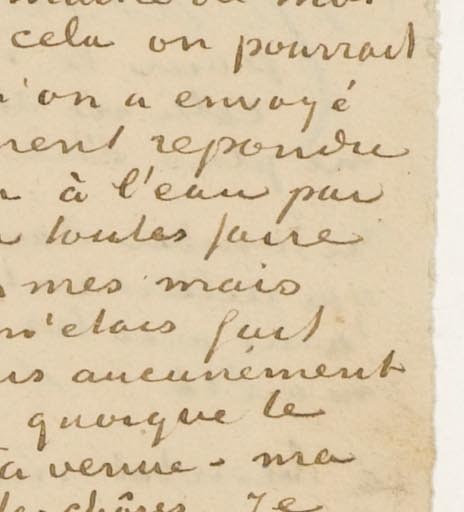 cela on pourrait
'on a envoyé
ment repondre
à l'eau par
toutes faire
mes mais
m'etais fait
aucunément
quoique le
venue. ma
Je